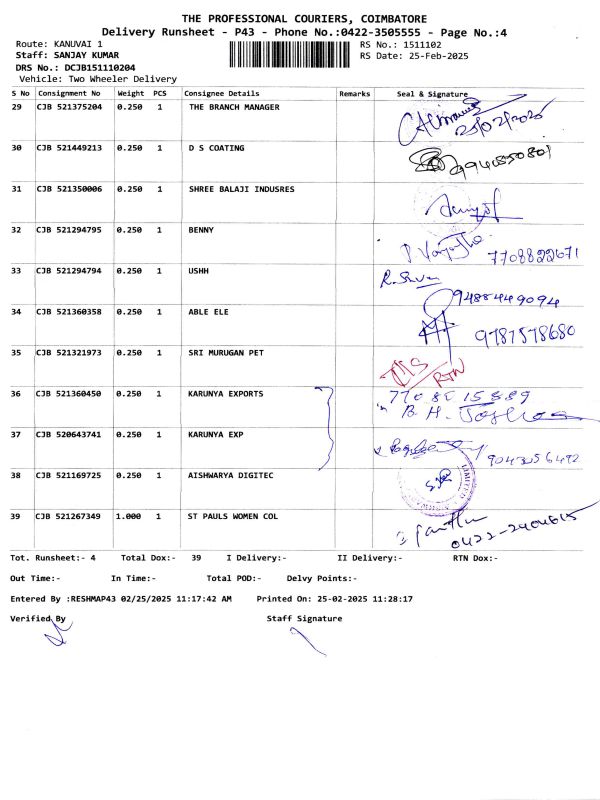 THE PROFESSIONAL COURIERS, COIMBATORE
Delivery Runsheet - P43 - Phone No.:0422-3505555 - Page No.:4
Route: KANUVAI 1 RS No.: 1511102
Staff: SANJAY KUMAR RS Date: 25-Feb-2025
DRS No.: DCJB151110204
Vehicle: Two Wheeler Delivery
S No Consignment No Weight PCS Consignee Details Remarks Seal & Signature
29 CJB 521375204 0.250 1 THE BRANCH MANAGER 25/02/2025
30 CJB 521449213 0.250 1 D S COATING
31 CJB 521350006 0.250 1 SHREE BALAJI INDUSRES
32 CJB 521294795 0.250 1 BENNY 7708822671
33 CJB 521294794 0.250 1 USHH 9488449094
34 CJB 521360358 0.250 1 ABLE ELE 9787578680
35 CJB 521321973 0.250 1 SRI MURUGAN PET RTN
36 CJB 521360450 0.250 1 KARUNYA EXPORTS
37 CJB 520643741 0.250 1 KARUNYA EXP 9043056492
38 CJB 521169725 0.250 1 AISHWARYA DIGITEC
39 CJB 521267349 1.000 1 ST PAULS WOMEN COL 0422-2404615
Tot. Runsheet:- 4 Total Dox:- 39 I Delivery:- II Delivery:- RTN Dox:-
Out Time:- In Time:- Total POD:- Delvy Points:-
Entered By :RESHMAP43 02/25/2025 11:17:42 AM Printed On: 25-02-2025 11:28:17
Verified By Staff Signature